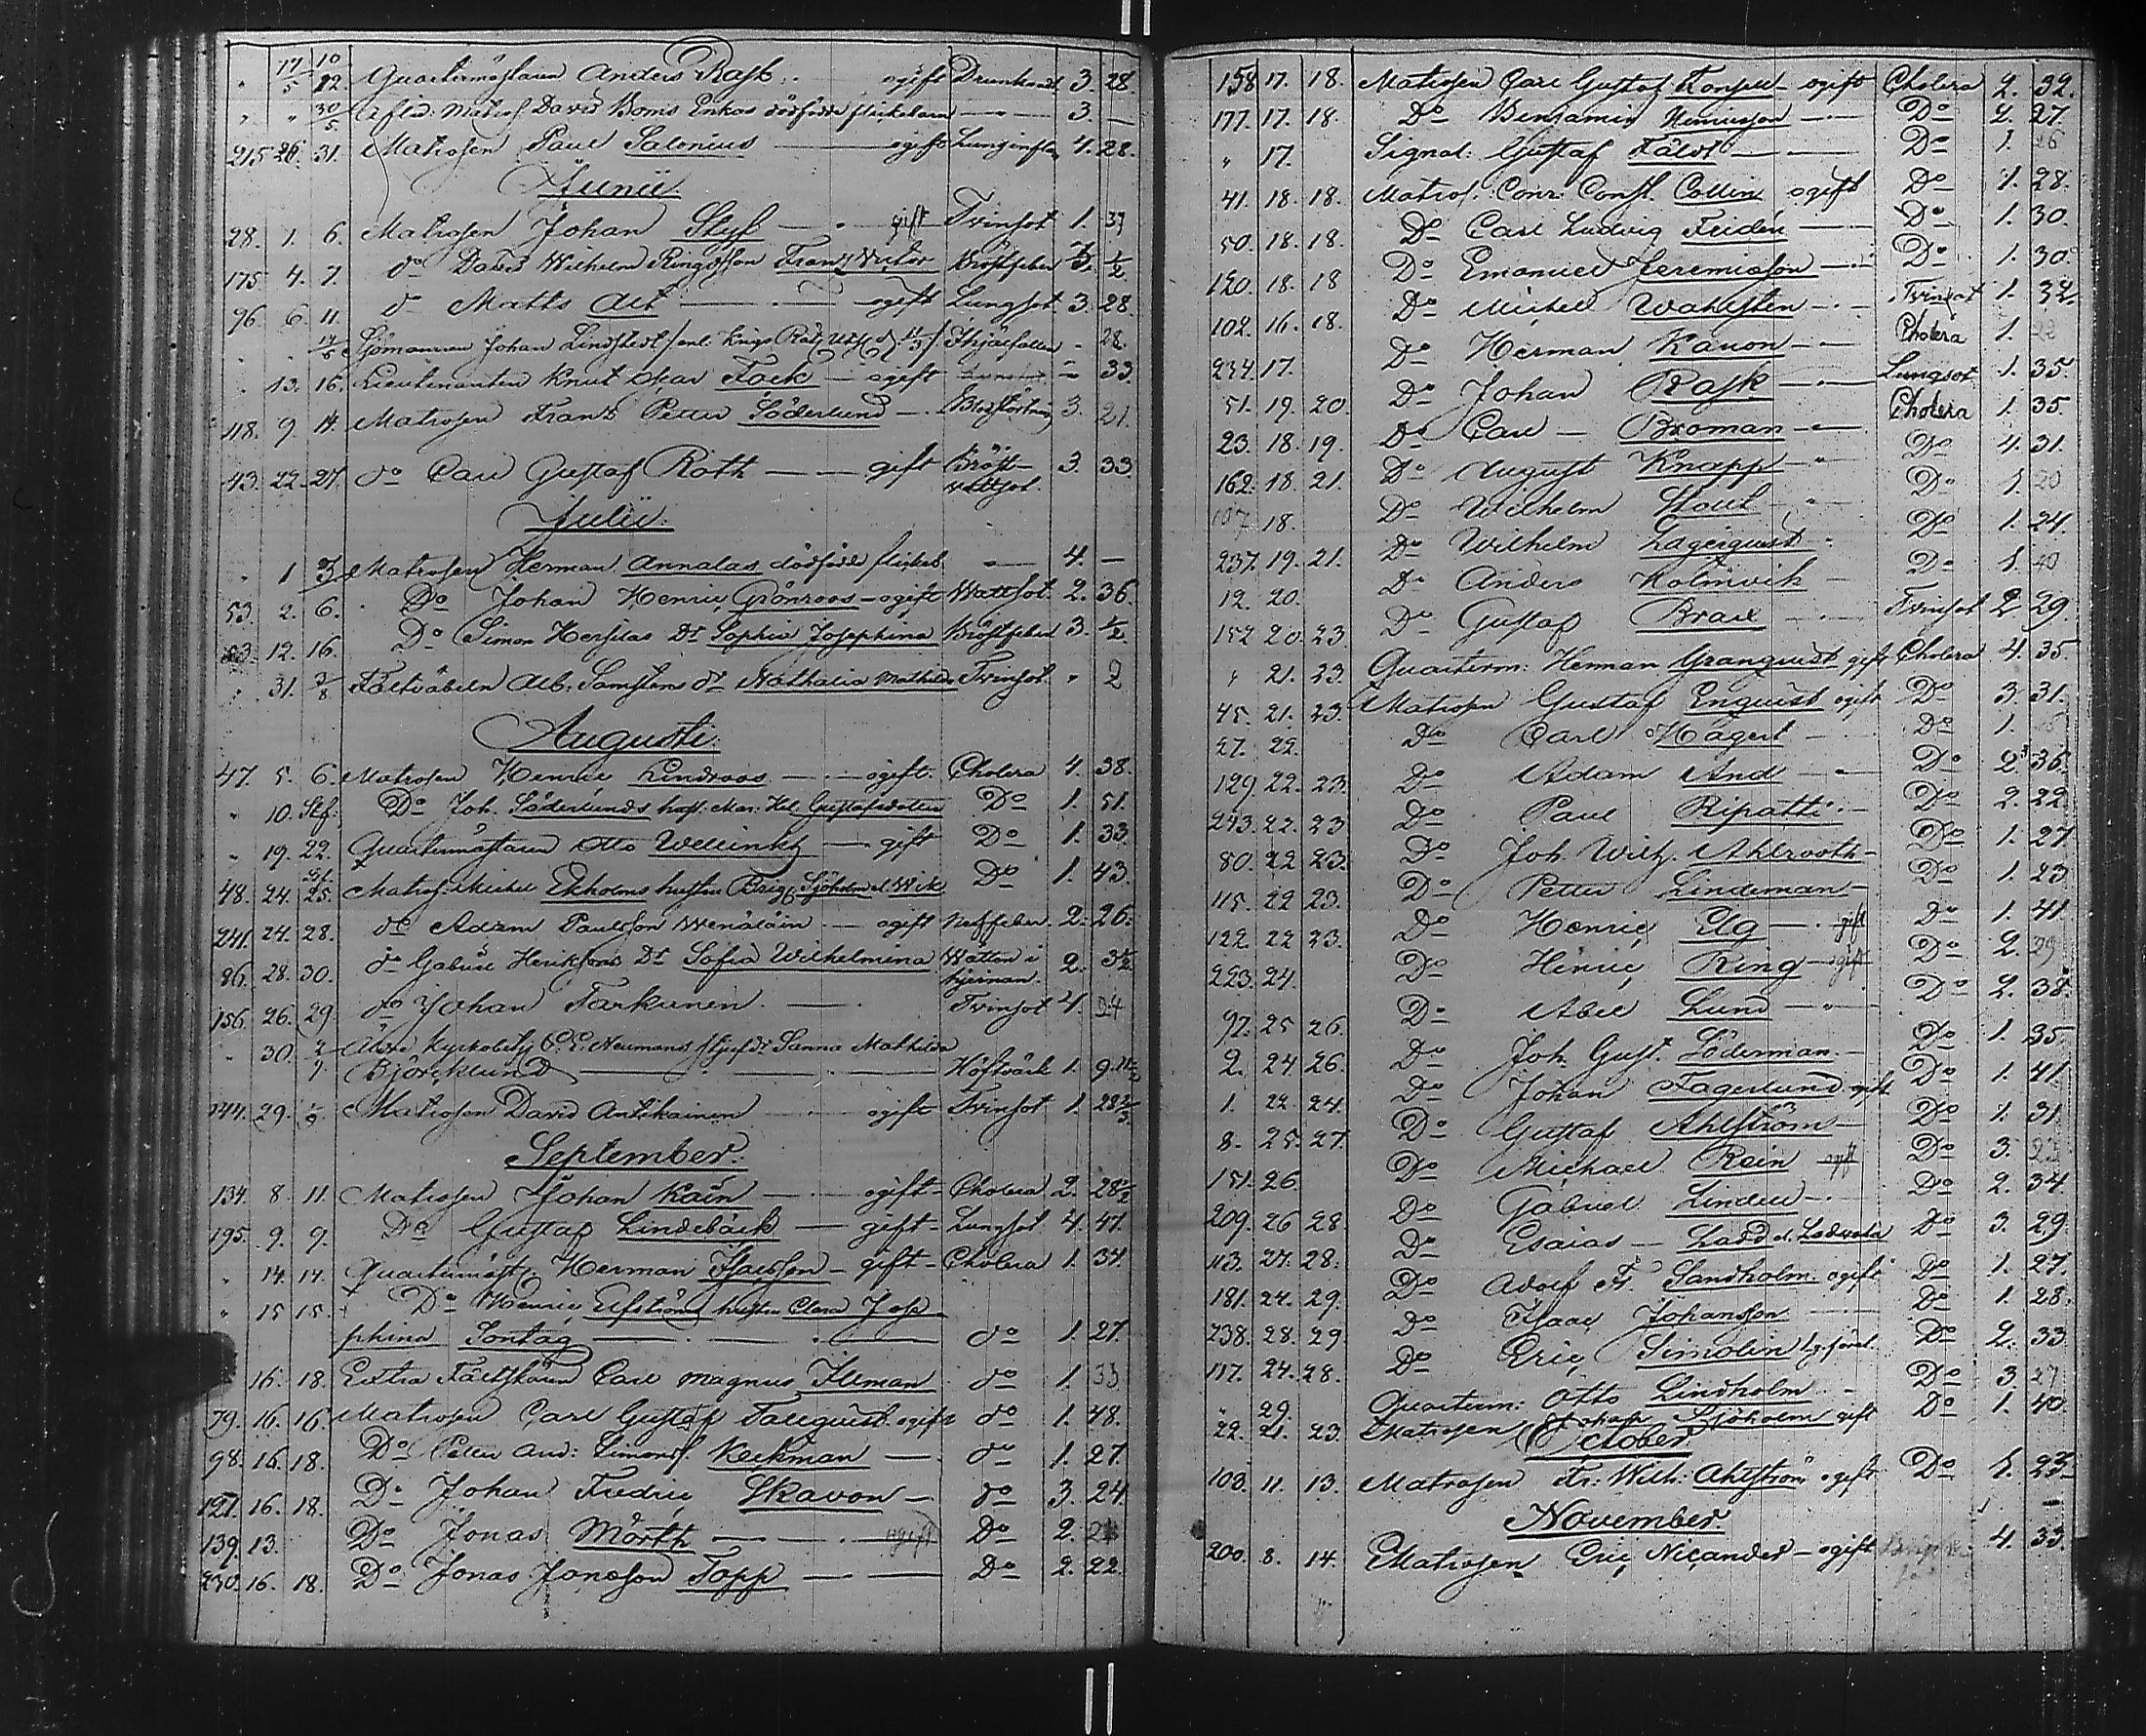 17/5 10/22. Quartermästaren Anders Rask. ogift Drunknad 3. 28.
" " 30/5 Matros David Boms Enkas dödfödda flickebarn — 3. —
215 26. 31. Matrosen Paul Salonius — ogift Lunginfla. 4. 28.
Junii.
28. 1. 6. Matrosen Johan Styf — gift Tvinsot 1. 37
175 4. 7. do David Wilhelm Ringdsson Frans Victor Bröstfeber 3. 1/2
96. 6. 11. do Matts Alt — ogift Lungsot. 3. 28.
Sjömannen Johan Lindstedt Ihjälfallen - 28.
" 13. 16. Lieutenanten Knut Oskar Fock — ogift — 33.
118. 9. 14. Matrosen Frantz Petter Söderlund — Blodstörtning 3. 21.
43. 22. 27. do Carl Gustaf Roth — gift Bröst- 3. 33.
vattsot.
Julii.
" 1 3 Matrosen Herman Annalas dödfödd flickeb. — 4. —
53. 2. 6. Do Johan Henric Grönroos — ogift Wattsot. 2. 36.
12. 16. Do Simon Dr Sophia Josephina Bröstfeber 3. 1/2
" 31. 3/8 Fältväbeln Alb. Samstens dr Nathalia Mathilda Tvinsot. " 2
Augusti.
47. 5. 6. Matrosen Henric Lindroos — ogift. Cholera 4. 38.
" 10. Do Joh. Söderlunds hust. Mar. Hel. Gustafsdotter Do 1. 51.
" 19. 22. Quartermästaren Otto Wellinsky — gift Do 1. 33.
48. 24. 25. Matros. Michel Ekholms hustru Brig. Sjöholm el. Wik Do 1. 43.
241. 24. 28. do Adam Paulsson Wenäläin — ogift Nerffeber. 2. 26.
86. 28. 30. do Gabriel Henrikssons Dr Sofia Wilhelmina Watten i 2. 3 1/2
hjernan.
156. 26. 29 do Johan Tarkunen — Tvinsot 4. 24
" 30. 2/9. Kyrkobetj. C. E. Neumans Sanna Mathilda
Björcklund — Höftvärk 1. 9.
144. 29. 1/9. Matrosen David Antikainen — ogift Tvinsot 1. 28
September.
134. 8. 11. Matrosen Johan Kain — ogift — Cholera 2. 28 1/2
195. 9. 9. Do Gustaf Lindebäck — gift — Lungsot 4. 47.
" 14. 14. Quartermäst. Herman Isacsson — gift — Cholera 1. 34.
" 15 15. Do Henric Elfströms hustru Clara Jose
phina Sontag — do 1. 27.
16. 18. Extra Fältskären Carl Magnus Ileman do 1. 33
79. 16. 16. Matrosen Carl Gustaf Fallquist ogift do 1. 48.
98. 16. 18. Do Petter And: Simonss. Keckman — do 1. 27.
121. 16. 18. Do Johan Fredric Skavon — do 3. 24.
139. 13. Do Jonas Mörth — ogift Do 2. 21
230. 16. 18. Do Jonas Jonesson Topp — Do 2. 22.
158 17. 18. Matrosen Carl Gustaf — ogift Cholera 2. 32.
177. 17. 18. Do Benjamin Henricsson — Do 2. 27.
" 17. Signal: Gustaf Fäldt — Do 1. 26
41. 18. 18. Matros. Conr. Const. Collin ogift Do 1. 28.
50. 18. 18. Do Carl Ludvig Fridén — Do 1. 30.
120. 18. 18 Do Emanuel Jeremiasson — Do 1. 30.
102. 16. 18. Do Michel Wahlsten — Tvinsot 1. 32.
234. 17. Do Herman Kanon — Cholera 1. 22
51. 19. 20. Do Johan Rask — Lungsot 1. 35.
23. 18. 19. Do Carl — Broman — Cholera 1. 35.
162. 18. 21. Do August Knapp — Do 4. 31.
107. 18. Do Wilhelm Stout — Do 1. 20
237. 19. 21. Do Wilhelm Lagerquist Do 1. 24.
12. 20. Do Anders Holmvik Do 1. 40
152 20. 23. Do Gustaf Brax Tvinsot 2 29.
" 21. 23. Quarterm: Herman Granquist gift Cholera 4. 35.
45. 21. 23. Matrosen Gustaf Enquist ogift Do 3. 31.
27. 22. Do Carl Hägert — Do 1.
129. 22. 23. Do Adam And — Do 2. 36.
243. 22. 23 Do Paul Ripatti. — Do 2. 22.
80. 22 23. Do Joh. Wilh. Ahlrooth — Do 1. 27
115. 22 23. Do Petter Lindeman — Do 1. 23
122. 22 23. Do Henric Elg — gift Do 1. 41.
223. 24. Do Henric Ring — ogift Do 2. 29
97. 25 26. Do Abel Lund — Do 2. 38.
2. 24 26. Do Joh. Gust. Söderman. — Do 1. 35.
1. 22 24. Do Johan Fagerlund gift Do 1. 41.
8. 25. 27. Do Gustaf Ahlström — Do 1. 31.
151. 26. Do Michael Rein ogift Do 3. 23
209. 26 28. Do Gabriel Lindell — Do 2. 34.
113. 27. 28. Do Esaias — Ladd el. Ladvala Do 3. 29.
181. 24. 29. Do Adolf Fr. Sandholm ogift Do 1. 27.
238. 28. 29. Do Isaac Johansson — Do 1. 28.
117. 24. 28. Do Eric Simolin Do 2. 33
" 29. Quarterm: Otto Lindholm — Do 3 27
22. 21. 23. Matrosen Johan Sjöholm gift Do 1. 40.
October
103. 11. 13. Matrosen Fr: Wilh: Ahlström ogift Do 1. 23
November.
200. 8. 14. Matrosen Eric Nicander — ogift 4. 33.